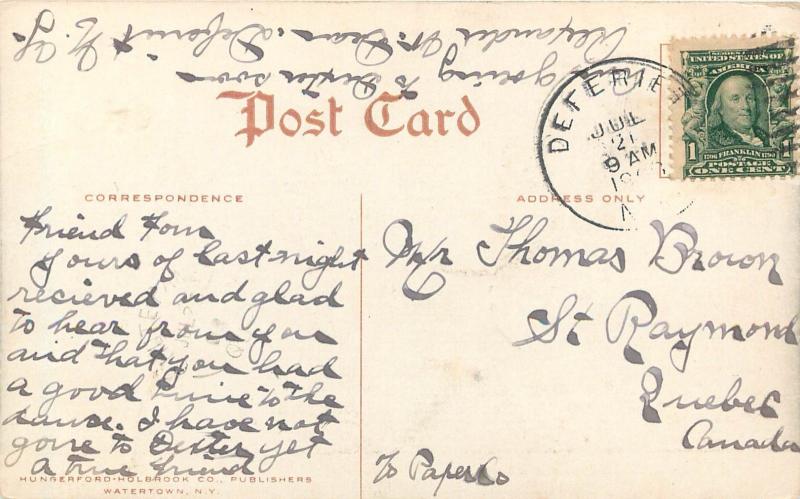 Am going to Dexter soon
Alexander W. Dean. Deferiet N.Y.
Post Card
DEFERIE
JUL
21
9 AM
SERIES
UNITED STATES OF
AMERICA
1
1706 FRANKLIN 1790
POSTAGE
ONE CENT
CORRESPONDENCE
ADDRESS ONLY
Friend Tom
Yours of last night
recieved and glad
to hear from you
and that you had
a good time to the
dance. I have not
gone to Dexter yet
A true friend
Mr Thomas Brown
St Raymond
Quebec
Canada
% Paper Co
HUNGERFORD-HOLBROOK CO., PUBLISHERS
WATERTOWN, N.Y.